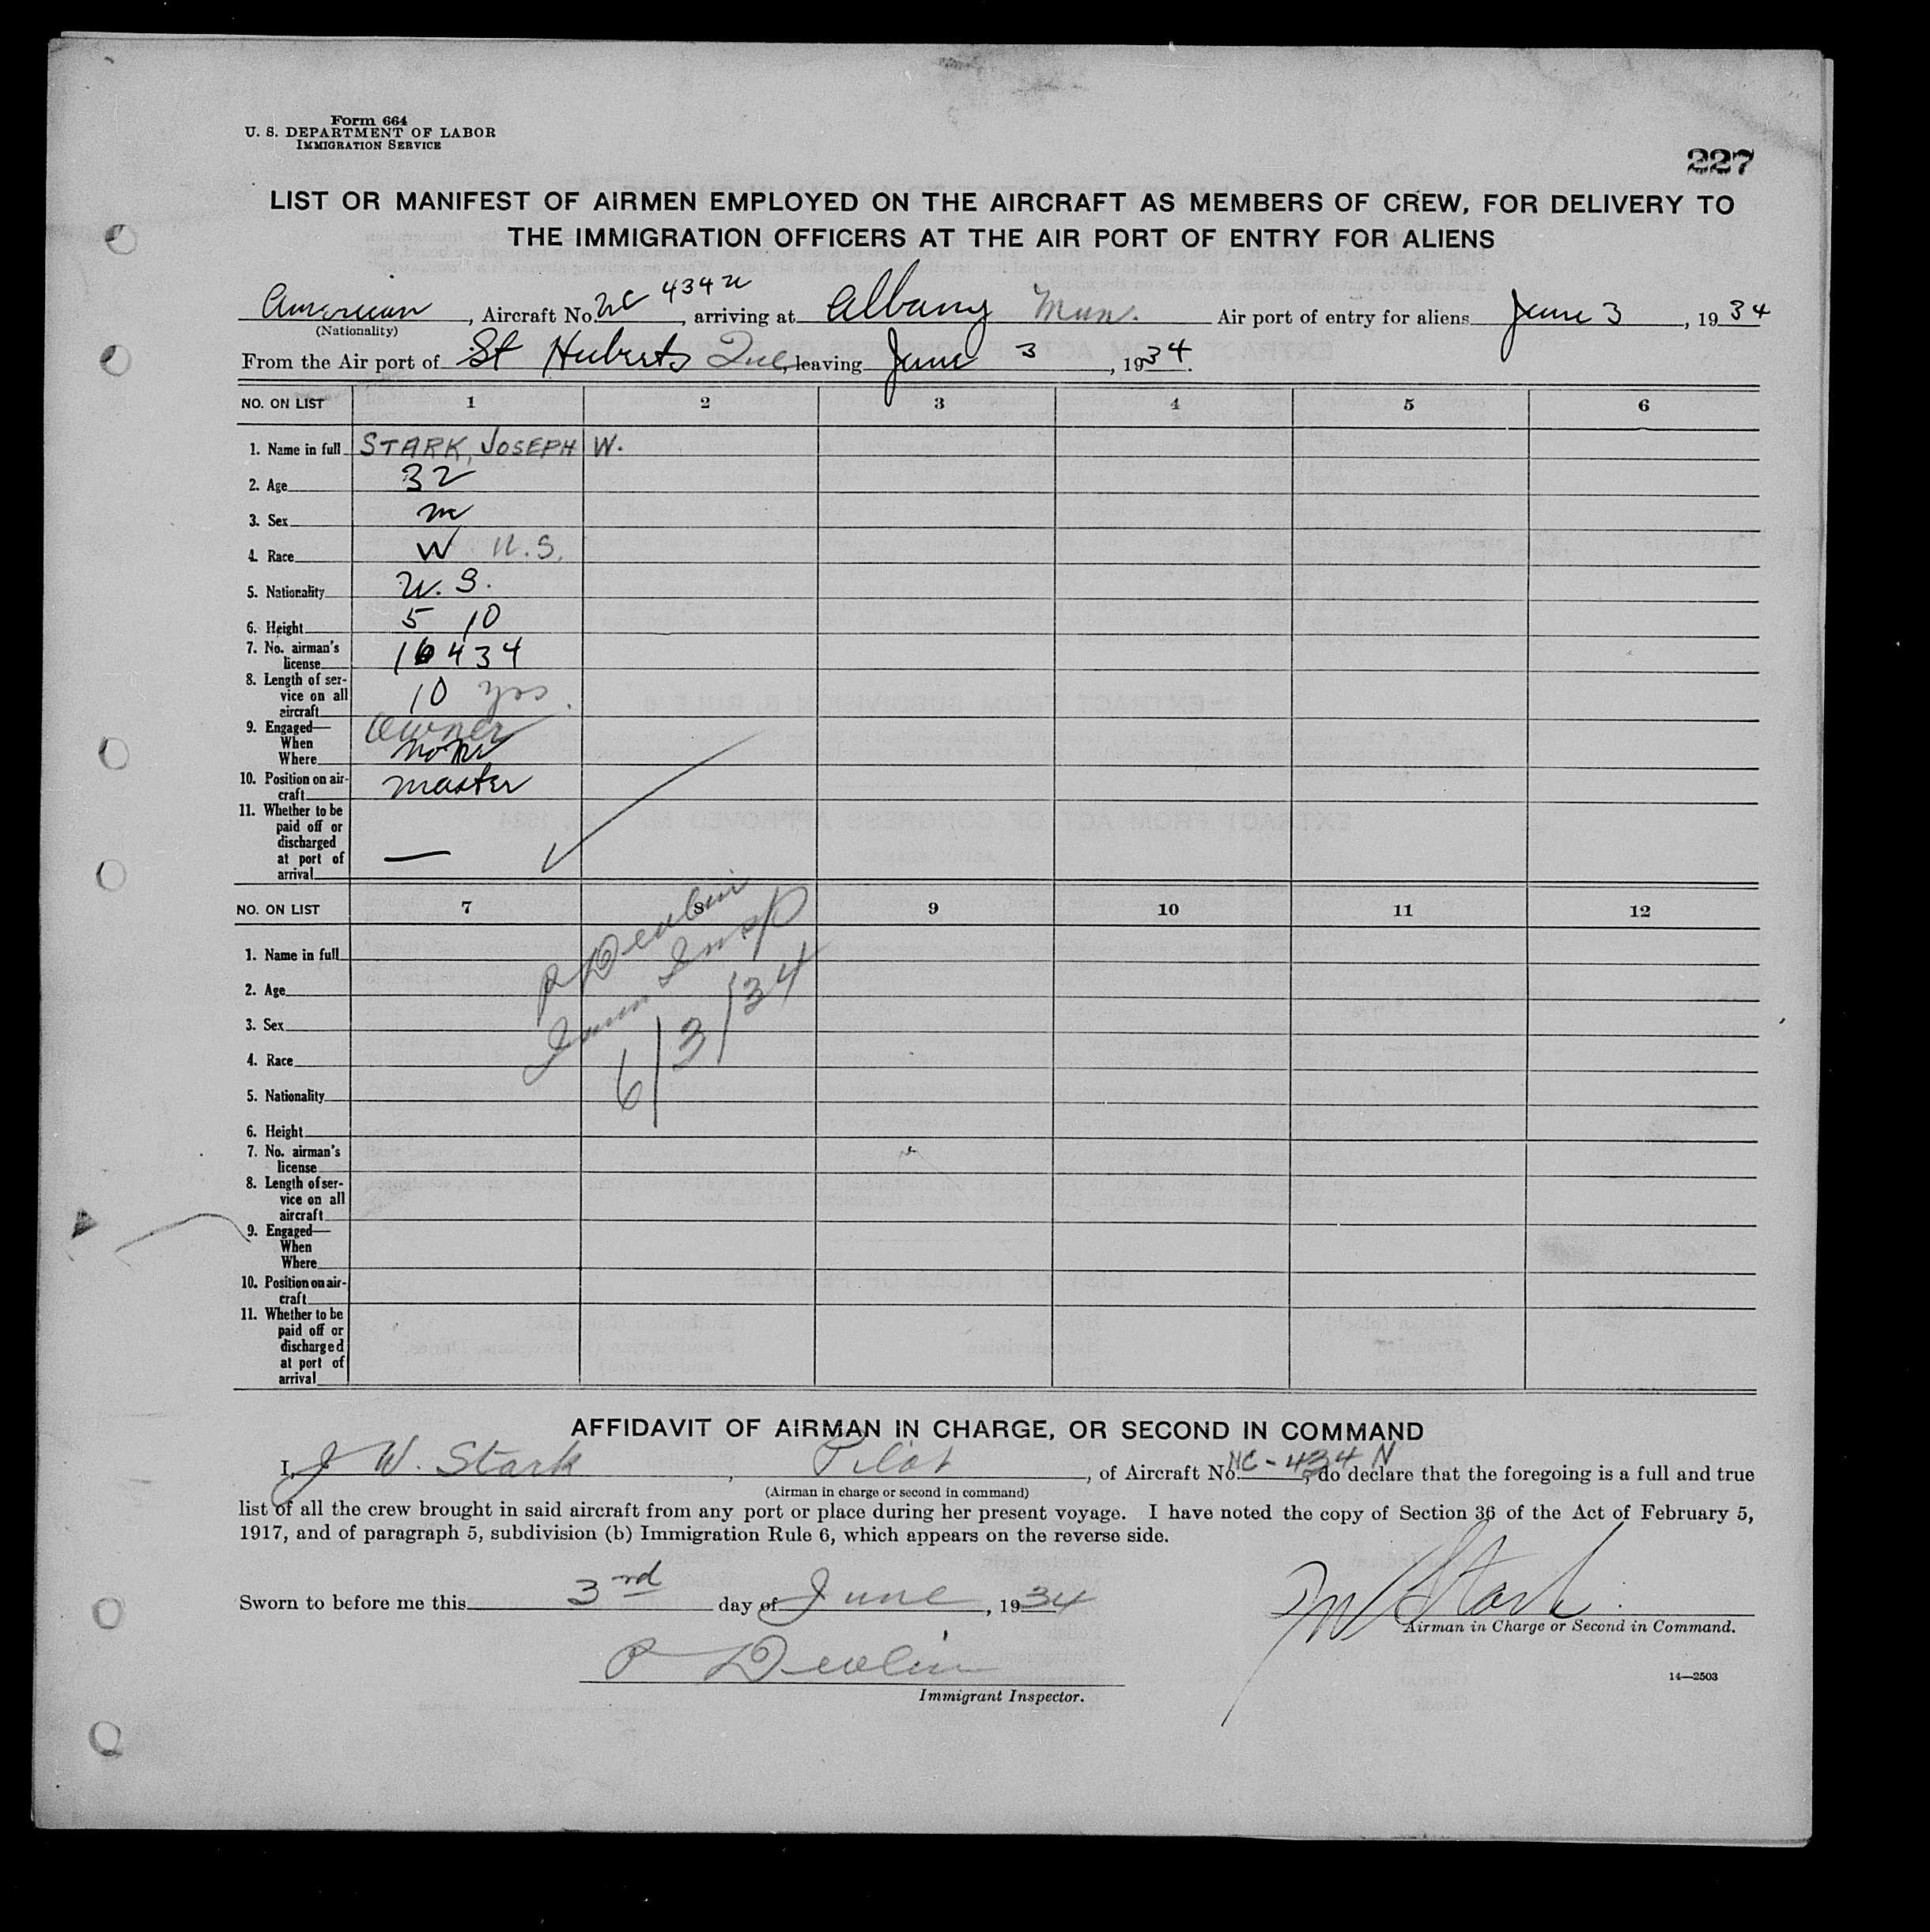 Form 664
U. S. DEPARTMENT OF LABOR
IMMIGRATION SERVICE
227
LIST OR MANIFEST OF AIRMEN EMPLOYED ON THE AIRCRAFT AS MEMBERS OF CREW, FOR DELIVERY TO
THE IMMIGRATION OFFICERS AT THE AIR PORT OF ENTRY FOR ALIENS
American, Aircraft No. NC 434N, arriving at Albany Mun. Air port of entry for aliens June 3, 1934
(Nationality)
From the Air port of St Huberts Que, leaving June 3, 1934.
NO. ON LIST 1 2 3 4 5 6
1. Name in full STARK, JOSEPH W.
2. Age 32
3. Sex m
4. Race W U.S.
5. Nationality U.S.
6. Height 5 10
7. No. airman's
license 16434
8. Length of ser-
vice on all
aircraft 10 yrs.
9. Engaged— Owner
When
Where none
10. Position on air-
craft master
11. Whether to be
paid off or
discharged
at port of
arrival —
NO. ON LIST 7 8 9 10 11 12
P Devlin
Imm Insp
6/3/34
1. Name in full
2. Age
3. Sex
4. Race
5. Nationality
6. Height
7. No. airman's
license
8. Length of ser-
vice on all
aircraft
9. Engaged—
When
Where
10. Position on air-
craft
11. Whether to be
paid off or
discharged
at port of
arrival
AFFIDAVIT OF AIRMAN IN CHARGE, OR SECOND IN COMMAND
I, J W. Stark, Pilot, of Aircraft No. NC-434N, do declare that the foregoing is a full and true
(Airman in charge or second in command)
list of all the crew brought in said aircraft from any port or place during her present voyage. I have noted the copy of Section 36 of the Act of February 5,
1917, and of paragraph 5, subdivision (b) Immigration Rule 6, which appears on the reverse side.
Sworn to before me this 3rd day of June, 1934
JW Stark
Airman in Charge or Second in Command.
P Devlin
Immigrant Inspector.
14—2503